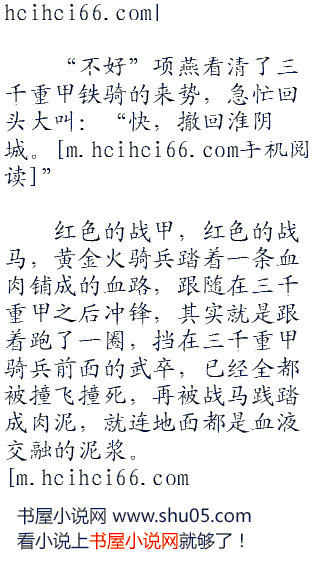 hcihci66.com|
“不好”项燕看清了三
千重甲铁骑的来势，急忙回
头大叫：“快，撤回淮阴
城。[m.hcihci66.com手机阅
读]”
红色的战甲，红色的战
马，黄金火骑兵踏着一条血
肉铺成的血路，跟随在三千
重甲之后冲锋，其实就是跟
着跑了一圈，挡在三千重甲
骑兵前面的武卒，已经全都
被撞飞撞死，再被战马践踏
成肉泥，就连地面都是血液
交融的泥浆。
[m.hcihci66.com
书屋小说网 www.shu05.com
看小说上书屋小说网就够了！